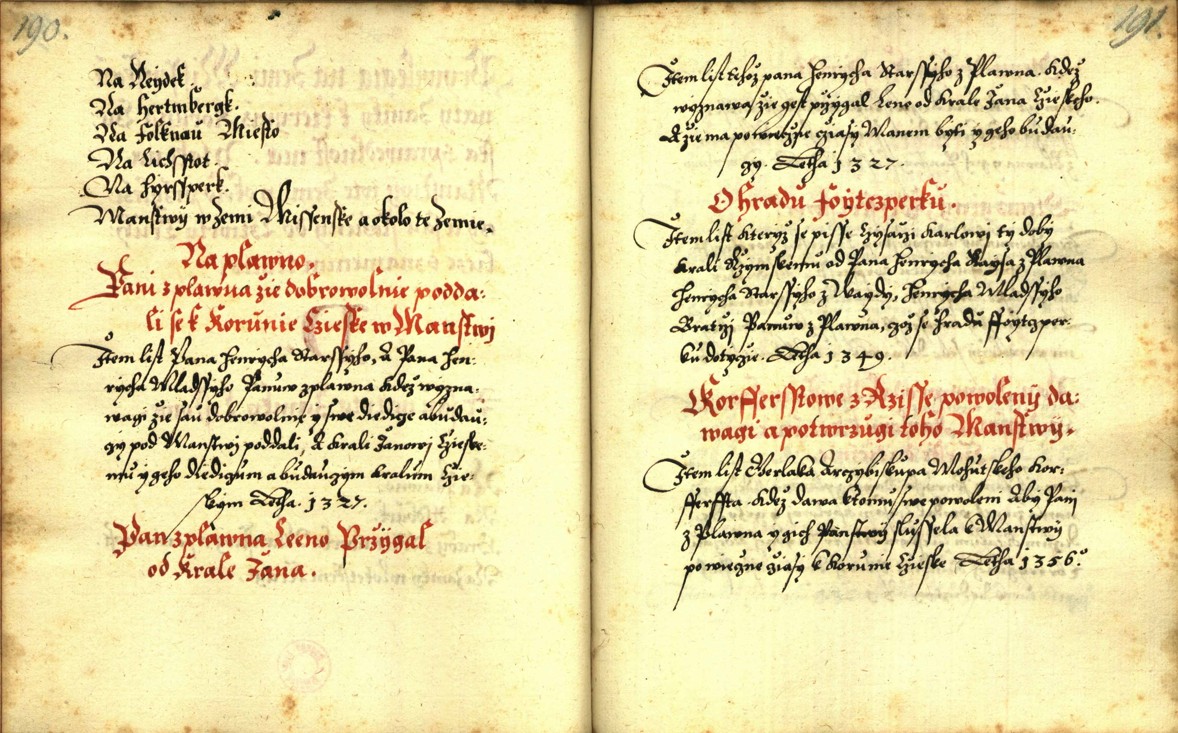 190.
Na Neydek.
Na Hertmbergk.
Na Folknau Miesto
Na Lichsstot.
Na Hyrssperk.
Manstwij w Zemi Missenske a okolo te Zemie.
Na plawno.
Pani z plawna zie dobrowolnie podda:
li se k Korunie Czieske w Manstwj
Item list Pana Henrycha Starssyho, A Pana Hen:
rycha Mladssyho Panuw z plawna kdez wyzna:
wagi zie sau dobrowolnie y swe diedicze a budau:
czy pod Manstwj poddali, A krali Janowj Czieske:
mu y geho diediczum a budauczym kralum Czie:
skym Letha. 1327.
Pan z plawna Leeno Przijgal
od Krale Jana.
191.
Item list tehoz pana Henrycha Starssyho z Plawna. kdez
wyznawa zie gest przygal Leno od Krale Jana Czieskeho.
A zie ma po wiecznie cziasy Manem byti y geho budau:
czy. Letha 1327.
O hradu Foytczperku.
Item list kteryz se pisse Czysarzi Karlowi ty doby
krali Rzymskemu od Pana Henrycha Raysa z Plawna
Henrycha Starssyho z Waydy, Henrycha Mladssyho
Bratrzj Panuw z Plawna, goz se hradu Ffoytczper:
ku dotycze. Letha 1349.
Korffersstowe z Rzisse powolenij da:
wagi a potwrzugi toho Manstwij.
Item list Gerlaka Arczybiskupa Mohutskeho Kor:
fferffta. kdez dawa k tomu swe powoleni Aby Pani
z Plawna y gich Panstwij slussela k Manstwij
po wieczne cziasy k Korunie Czieske Letha 1356.